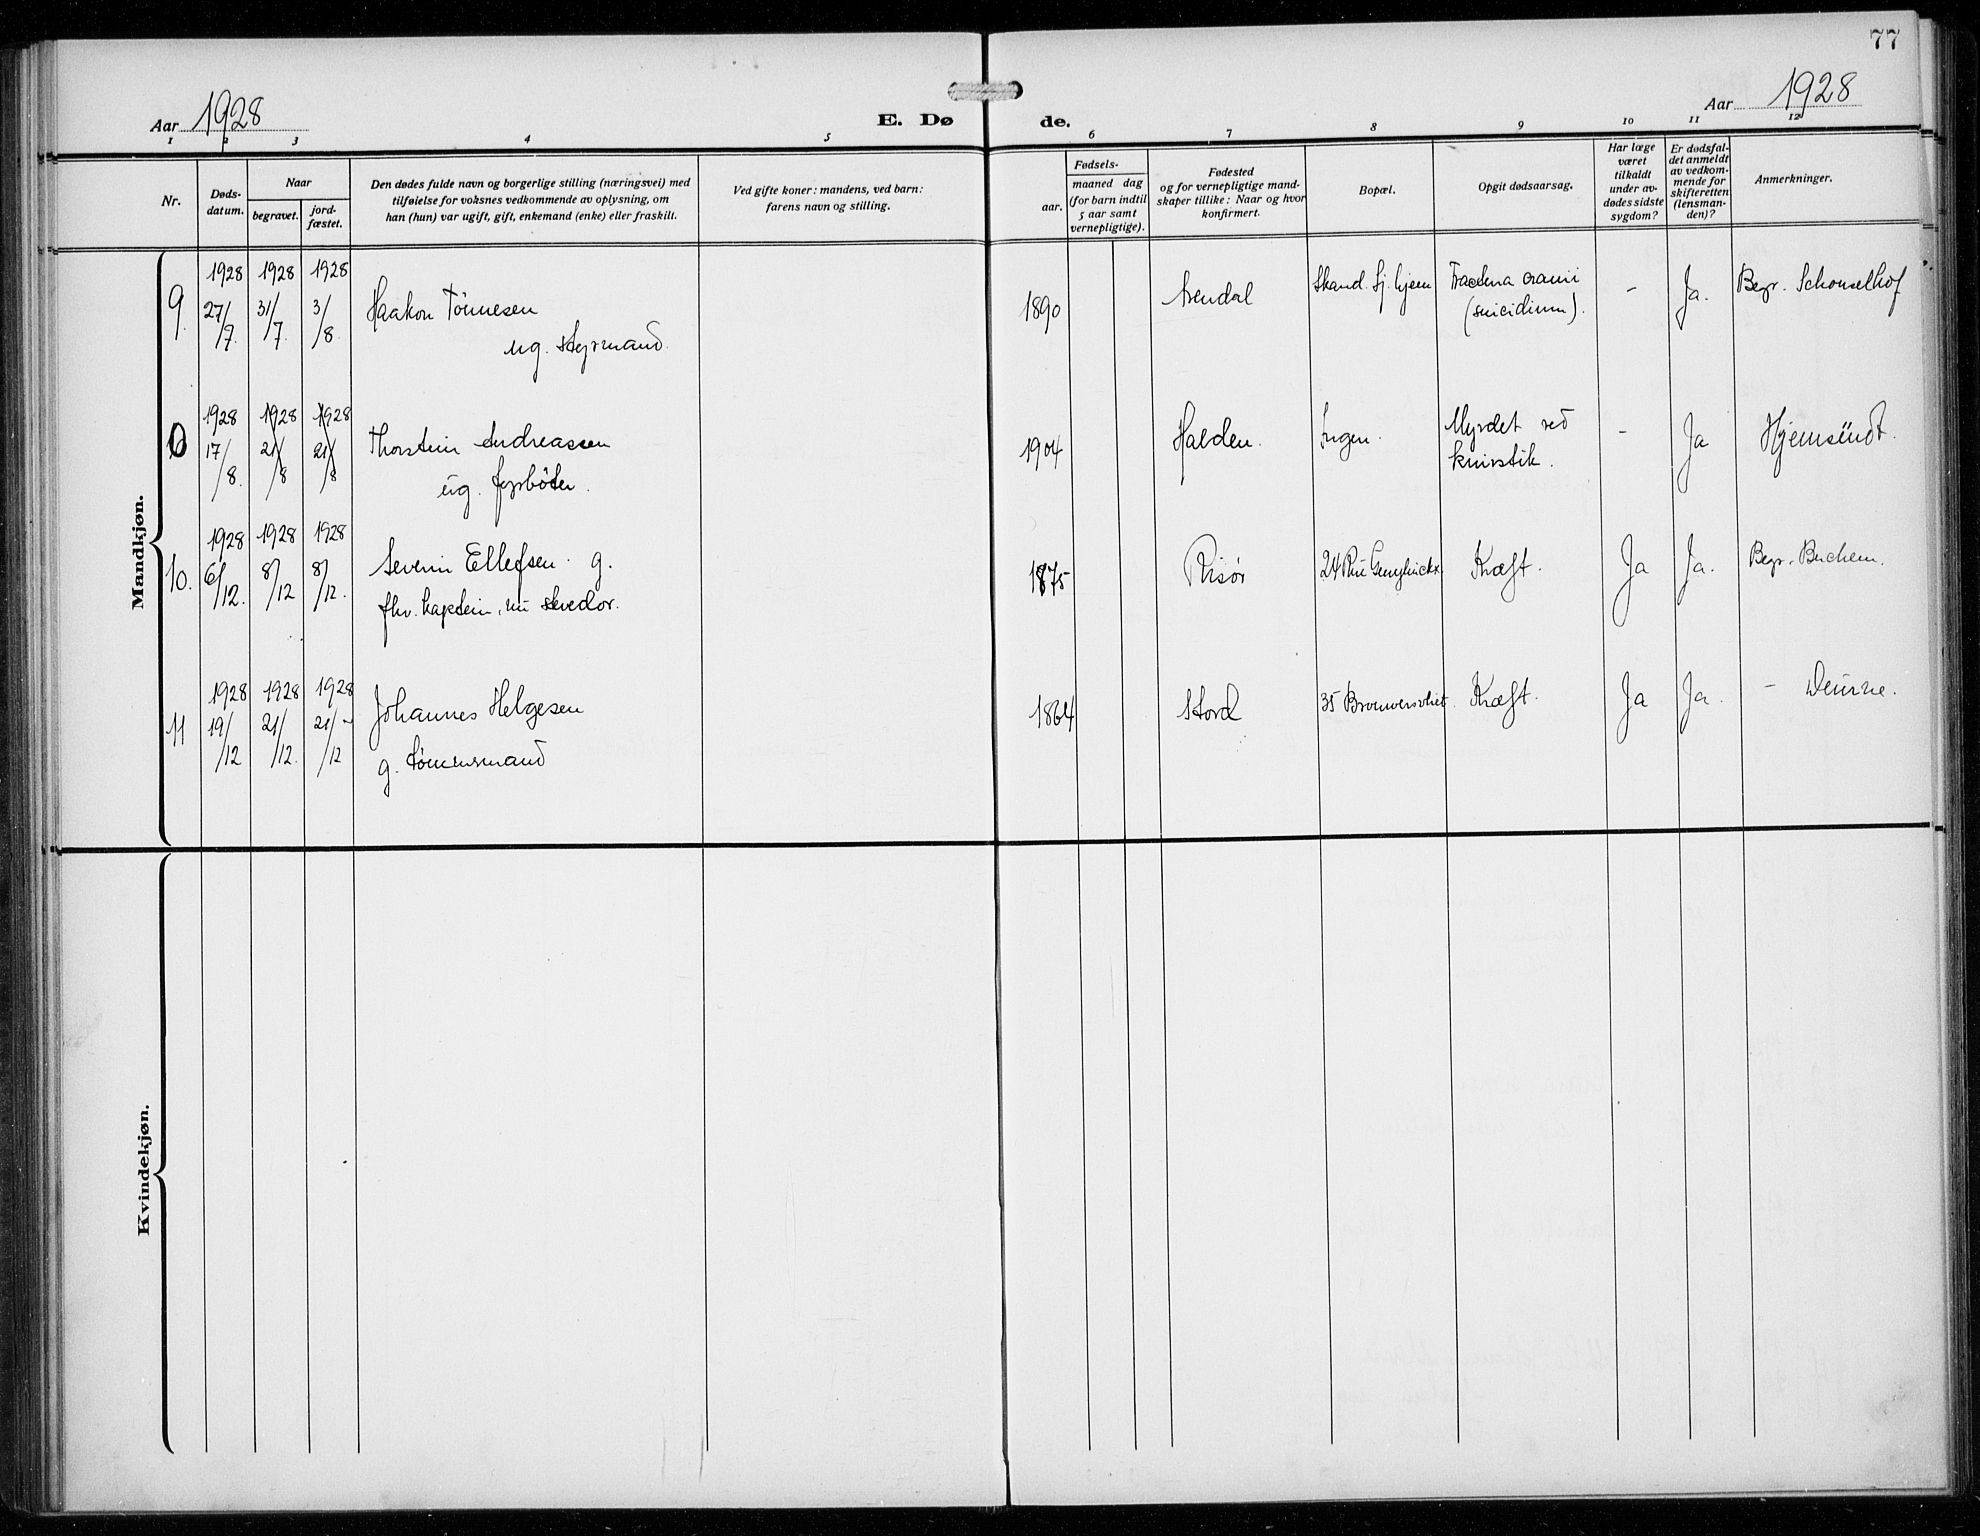 77
Aar 1928
E. Døde.
Aar 1928
1 2 3 4 5 6 7 8 9 10 11 12
Nr.
Døds-
datum.
Naar
begravet.
jord-
fæstet.
Den dødes fulde navn og borgerlige stilling (næringsvei) med
tilføielse for voksnes vedkommende av oplysning, om
han (hun) var ugift, gift, enkemand (enke) eller fraskilt.
Ved gifte koner: mandens, ved barn:
farens navn og stilling.
Fødsels-
aar.
maaned dag
(for barn indtil
5 aar samt
vernepligtige).
Fødested
og for vernepligtige mand-
skaper tillike: Naar og hvor
konfirmert.
Bopæl.
Opgit dødsaarsag.
Har læge
været
tilkaldt
under av-
dødes sidste
sygdom?
Er dødsfal-
det anmeldt
av vedkom-
mende for
skifteretten
(lensman-
den)?
Anmerkninger.
Mandkjøn.
1928 1928 1928
9. 27/7. 31/7. 3/8. Haakon Tönnesen 1890 Arendal Skand. Sj. hjem Fractura cranii - Ja. Begr. Schonselhof
ug. Styrmand. (suicidium).
1928 1928 1928
0 17/8. 21/8 21/8 Thorstein Andreassen 1904 Halden. Ingen. Myrdet ved - Ja Hjemsendt.
ug. fyrböter. knivstik.
1928 1928 1928
10. 6/12. 8/12 8/12. Severin Ellefsen g. 1875 Risör 24 Rue Kræft. Ja Ja. Begr. Berchem.
fhv. kaptein, nu
1928 1928 1928
11 19/12 21/12. 21/12 Johannes Helgesen 1864 Stord 35 Brouwersvliet Kræft. Ja Ja. - Deurne.
g. tömmermand
Kvindekjøn.